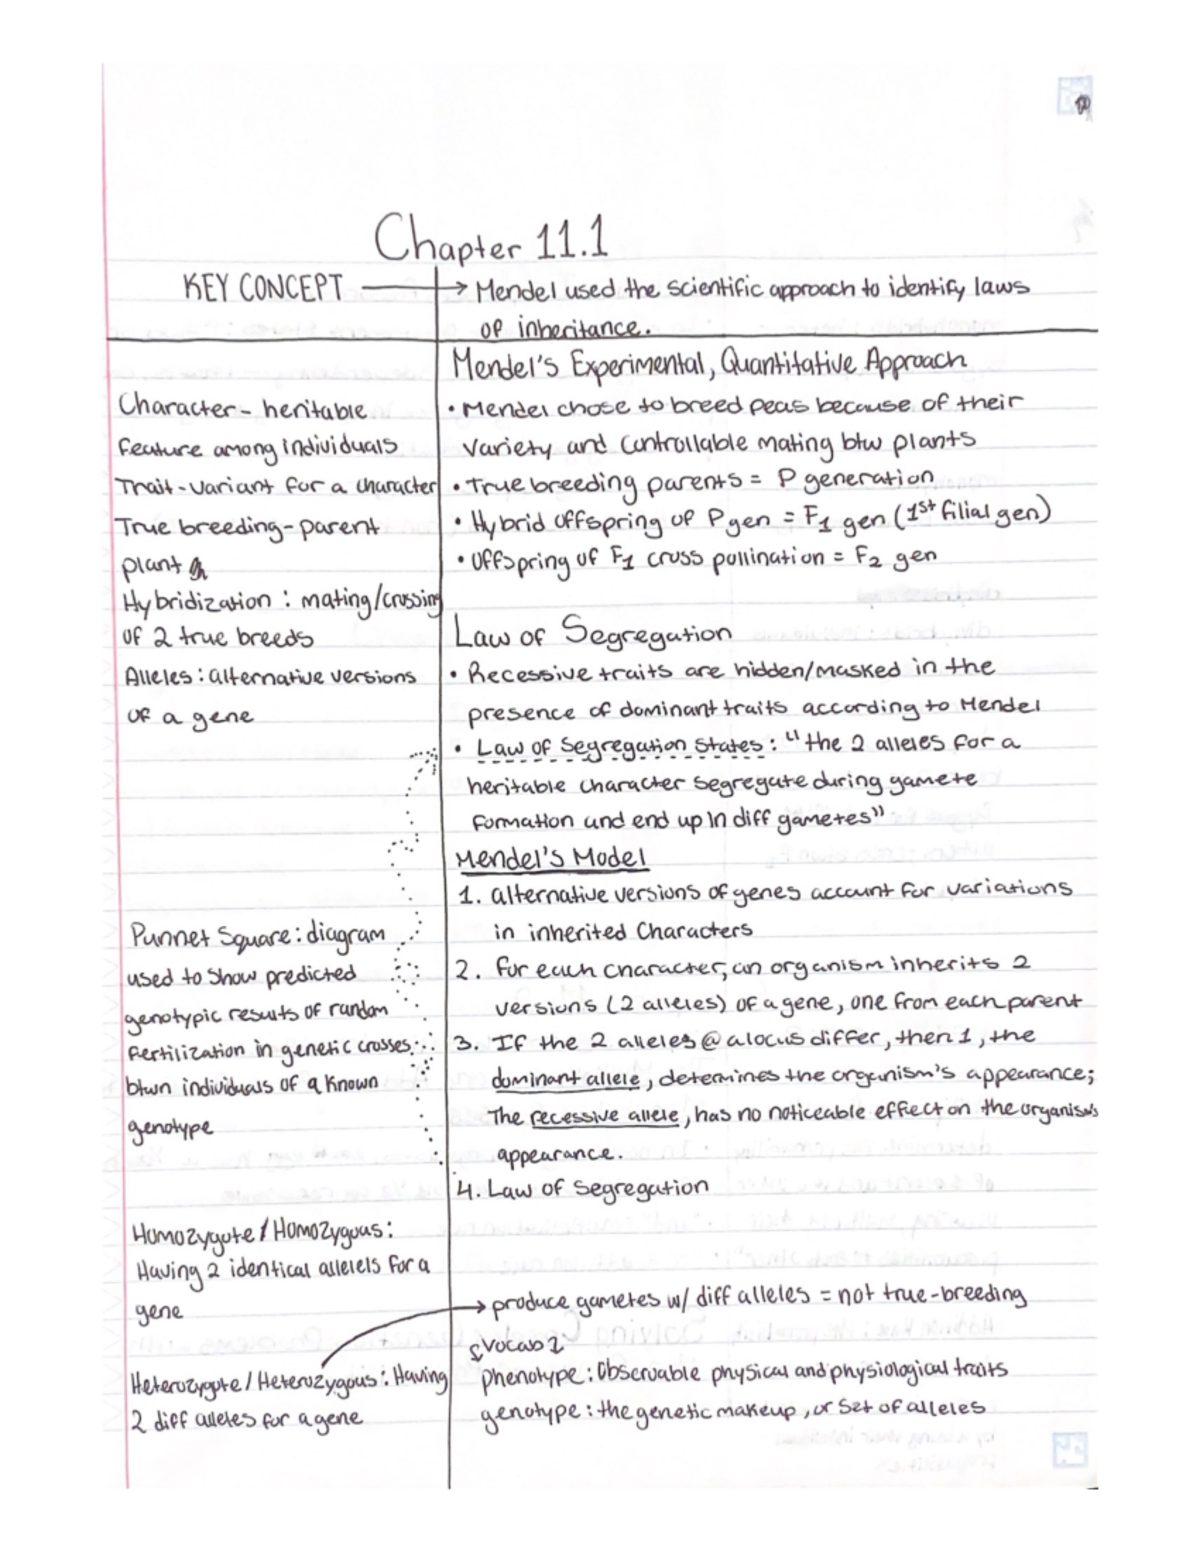 Chapter 11.1
KEY CONCEPT → Mendel used the scientific approach to identify laws
of inheritance.
Character - heritable
feature among individuals
Trait - variant for a character
True breeding - parent
plant
Hybridization : mating/crossing
of 2 true breeds
Alleles : alternative versions
of a gene
Punnet Square : diagram
used to show predicted
genotypic results of random
fertilization in genetic crosses
btwn individuals of a known
genotype
Homozygote / Homozygous :
Having 2 identical allelels for a
gene
Heterozygote / Heterozygous : Having
2 diff alleles for a gene
Mendel's Experimental, Quantitative Approach
• Mendel chose to breed peas because of their
variety and controllable mating btw plants
• True breeding parents = P generation
• Hybrid offspring of P gen = F1 gen (1st filial gen)
• Offspring of F1 cross pollination = F2 gen
Law of Segregation
• Recessive traits are hidden/masked in the
presence of dominant traits according to Mendel
• Law of Segregation States : "the 2 alleles for a
heritable character segregate during gamete
formation and end up in diff gametes"
Mendel's Model
1. alternative versions of genes account for variations
in inherited Characters
2. for each character, an organism inherits 2
versions (2 alleles) of a gene, one from each parent
3. If the 2 alleles @ a locus differ, then 1, the
dominant allele, determines the organism's appearance;
The recessive allele, has no noticeable effect on the organism's
appearance.
4. Law of Segregation
→ produce gametes w/ diff alleles = not true-breeding
vocab
phenotype : Observable physical and physiological traits
genotype : the genetic makeup, or set of alleles